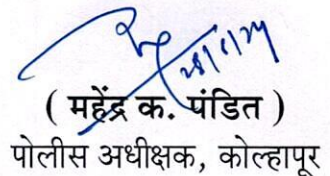 ( महेंद्र क. पंडित )
पोलीस अधीक्षक, कोल्हापूर